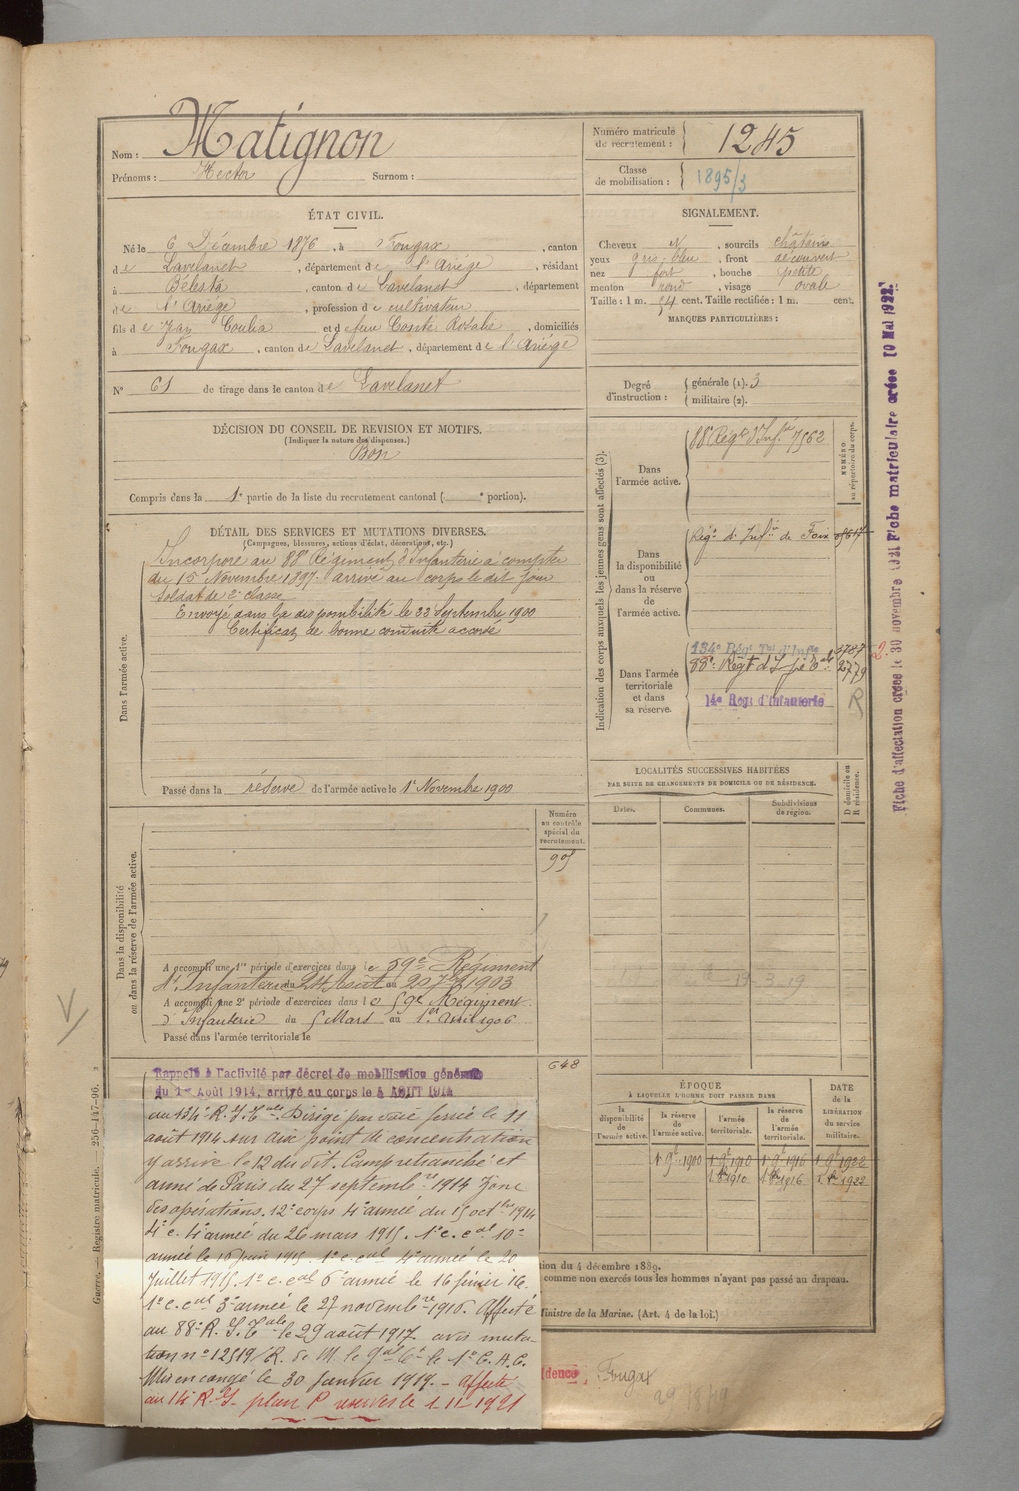 Nom : Matignon
Prénoms : Hector Surnom :
Numéro matricule de recrutement : 1245
Classe de mobilisation : 1895/3
ÉTAT CIVIL.
Né le 6 Décembre 1876, à Fougax, canton
de Lavelanet, département de l'Ariége, résidant
à Bélesta, canton de Lavelanet, département
de l'Ariége, profession de cultivateur
fils de Jean Coulia et de feue Comte Rosalie, domiciliés
à Fougax, canton de Lavelanet, département de l'Ariége
N° 61 de tirage dans le canton de Lavelanet
SIGNALEMENT.
Cheveux N, sourcils châtains
yeux gris-bleu, front découvert
nez fort, bouche petite
menton rond, visage ovale
Taille : 1 m. 54 cent. Taille rectifiée : 1 m. cent.
MARQUES PARTICULIÈRES :
Degré d'instruction : générale (1). 3
militaire (2).
DÉCISION DU CONSEIL DE REVISION ET MOTIFS.
(Indiquer la nature des dispenses.)
Bon
Compris dans la 1e partie de la liste du recrutement cantonal ( e portion).
DÉTAIL DES SERVICES ET MUTATIONS DIVERSES.
(Campagnes, blessures, actions d'éclat, décorations, etc.)
Dans l'armée active.
Incorporé au 88e Régiment d'Infanterie à compter
du 15 Novembre 1897. arrivé au corps le dit jour
Soldat de 2e classe
Envoyé dans la disponibilité le 22 Septembre 1900
Certificat de bonne conduite accordé
Passé dans la réserve de l'armée active le 1er Novembre 1900
Indication des corps auxquels les jeunes gens sont affectés (3).
NUMÉRO au répertoire du corps.
Dans l'armée active.
88e Régt d'Infrie 7562
Dans la disponibilité ou dans la réserve de l'armée active.
Régt d'Infrie de Foix
Dans l'armée territoriale et dans sa réserve.
134e Régt Tal d'Infie 3787
88e Régt d'Ife Tale 2779
14e Regt d'Infanterie R
LOCALITÉS SUCCESSIVES HABITÉES
PAR SUITE DE CHANGEMENTS DE DOMICILE OU DE RÉSIDENCE.
Dates. Communes. Subdivisions de région.
D domicile ou R résidence.
Numéro au contrôle spécial du recrutement.
Dans la disponibilité ou dans la réserve de l'armée active.
A accompli une 1re période d'exercices dans le 59e Régiment
d'Infanterie du 24 Août au 20 7bre 1903
A accompli une 2e période d'exercices dans le 59e Régiment
d'Infanterie du 5 Mars au 1er Avril 1906
Passé dans l'armée territoriale le
648
Rappelé à l'activité par décret de mobilisation générale
du 1er Août 1914, arrivé au corps le 4 AOUT 1914
au 134e R. I. Tale. Dirigé par voie ferrée le 11
août 1914 sur dix point de concentration
y arrive le 12 du dit. Camp retranché et
armée de Paris du 27 septembre 1914 Zone
des opérations. 12e corps 4e armée du 15 octbre 1914
4e c. 4e armée du 26 mars 1915. 1e c. cal 10e
armée le 16 juin 1915. 1e c. cal 4e armée le 20
Juillet 1915. 1e c. cal 6e armée le 16 février 16.
1e c. cal 3e armée le 27 novembre 1916. Affecté
au 88e R. I. Tale le 29 août 1917. avis muta-
tion n° 12519/R. de M. le Gal Ct le 1e C. A. C.
Mis en congé le 30 Janvier 1919. - Affecté
au 14 R. I. plan P réserves le 1-11-1921
ÉPOQUE
À LAQUELLE L'HOMME DOIT PASSER DANS
la disponibilité de l'armée active. la réserve de l'armée active. l'armée territoriale. la réserve de l'armée territoriale.
DATE de la LIBÉRATION du service militaire.
1er 9bre 1900 1er 9bre 1910 1er 9bre 1916 1er 9bre 1922
1er 8bre 1910 1er 8bre 1916 1er 8bre 1922
tion du 4 décembre 1889.
comme non exercés tous les hommes n'ayant pas passé au drapeau.
Ministre de la Marine. (Art. 4 de la loi.)
idence Fougax
Guerre. — Registre matricule. 256-147-96.
Fiche d'affectation créée le 30 novembre 1921 Fiche matriculaire créée 10 Mai 1922.